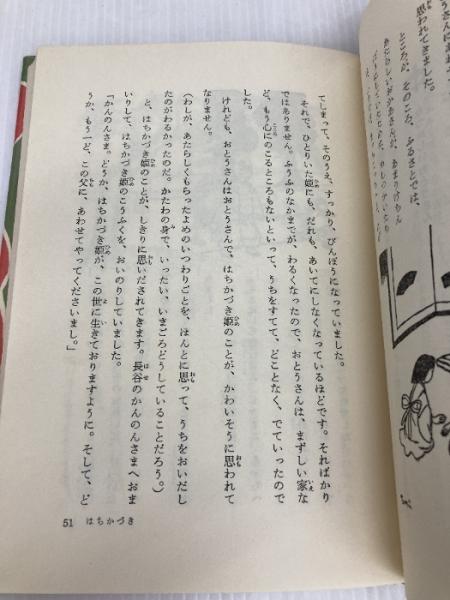 思われてきました。
ところが、そのころ、ふるさとでは、
てしまって、そのうえ、すっかり、びんぼうになっていました。
それで、ひとりいた姫にも、だれも、あいてにしなくなっているほどです。そればかり
ではありません。ふうふのなかまでが、わるくなったので、おとうさんは、まずしい家な
ど、もう心にのこるところもないといって、うちをすてて、どことなく、でていったので
した。
けれども、おとうさんはおとうさんで、はちかづき姫のことが、かわいそうに思われて
なりません。
(わしが、あたらしくもらったよめのいつわりごとを、ほんとに思って、うちをおいだし
たのがわるかったのだ。かたわの身で、いったい、いまごろどうしていることだろう。)
と、はちかづき姫のことが、しきりに思いだされてきます。長谷のかんのんさまへおま
いりして、はちかづき姫のこうふくを、おいのりしていました。
「かんのんさま。どうか、はちかづき姫が、この世に生きておりますように。そして、ど
うか、もう一ど、この父に、あわせてやってくださいまし。」
51 はちかづき